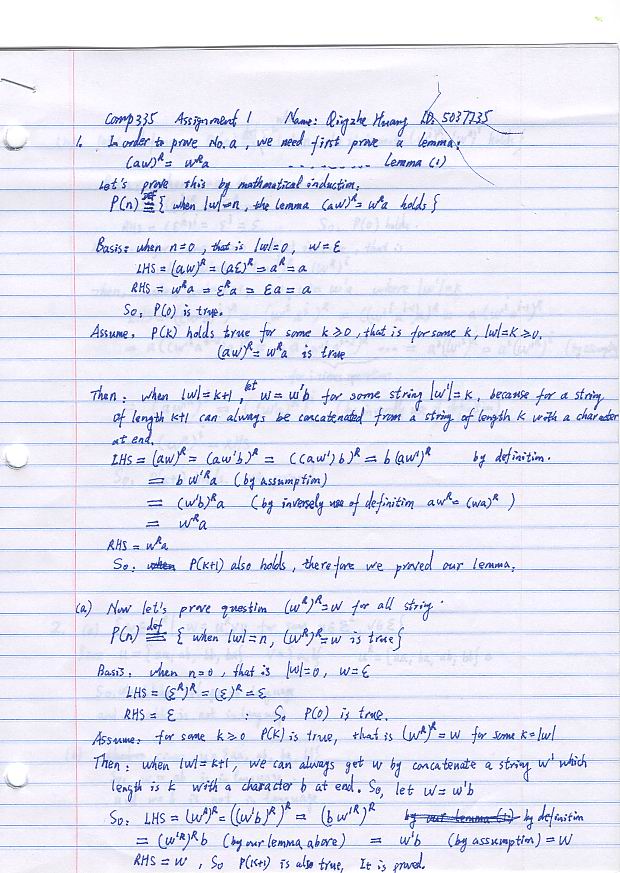 Comp335 Assignment 1 Name: Qingzhe Huang ID: 5037735
1. In order to prove No. a, we need first prove a lemma:
(aw)ᴿ = wᴿa ........... Lemma (1)
Let's prove this by mathmatical induction:
P(n) def≡ { when |w|=n, the lemma (aw)ᴿ = wᴿa holds }
Basis: when n=0, that is |w|=0, w=ε
LHS = (aw)ᴿ = (aε)ᴿ = aᴿ = a
RHS = wᴿa = εᴿa = εa = a
So, P(0) is true.
Assume: P(k) holds true for some k≥0, that is for some k, |w|=k≥0.
(aw)ᴿ = wᴿa is true
Then: when |w|=k+1, let w = w'b for some string |w'|=k, because for a string
of length k+1 can always be concatenated from a string of length k with a character
at end.
LHS = (aw)ᴿ = (aw'b)ᴿ = ((aw')b)ᴿ = b(aw')ᴿ by definition.
= bw'ᴿa (by assumption)
= (w'b)ᴿa (by inversely use of definition awᴿ = (wa)ᴿ)
= wᴿa
RHS = wᴿa
So: when P(k+1) also holds, therefore we proved our lemma.
(a) Now let's prove question (wᴿ)ᴿ = w for all string.
P(n) def≡ { when |w|=n, (wᴿ)ᴿ = w is true }
Basis: when n=0, that is |w|=0, w=ε
LHS = (εᴿ)ᴿ = (ε)ᴿ = ε
RHS = ε : So P(0) is true.
Assume: for some k≥0 P(k) is true, that is (wᴿ)ᴿ = w for some k=|w|
Then: when |w|=k+1, we can always get w by concatenate a string w' which
length is k with a character b at end. So, let w = w'b
So: LHS = (wᴿ)ᴿ = ((w'b)ᴿ)ᴿ = (bw'ᴿ)ᴿ by our lemma (1) by definition
= (w'ᴿ)ᴿb (by our lemma above) = w'b (by assumption) = w
RHS = w, So P(k+1) is also true, It is proved.